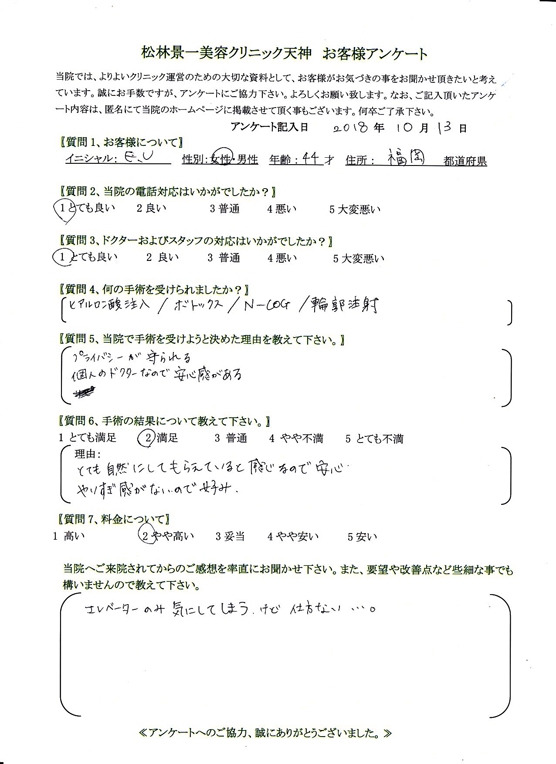 松林景一美容クリニック天神　お客様アンケート
当院では、よりよいクリニック運営のための大切な資料として、お客様がお気づきの事をお聞かせ頂きたいと考え
ています。誠にお手数ですが、アンケートにご協力下さい。よろしくお願い致します。なお、ご記入頂いたアンケ
ート内容は、匿名にて当院のホームページに掲載させて頂く事もございます。何卒ご了承下さい。
アンケート記入日　2018 年 10 月 13 日
〖質問 1、お客様について〗
イニシャル： E、U　性別：女性・男性　年齢：44 才　住所：福岡　都道府県
〖質問 2、当院の電話対応はいかがでしたか？〗
1 とても良い　2 良い　3 普通　4 悪い　5 大変悪い
〖質問 3、ドクターおよびスタッフの対応はいかがでしたか？〗
1 とても良い　2 良い　3 普通　4 悪い　5 大変悪い
〖質問 4、何の手術を受けられましたか？〗
ヒアルロン酸注入 / ボトックス / N-COG / 輪郭注射
〖質問 5、当院で手術を受けようと決めた理由を教えて下さい。〗
プライバシーが守られる
個人のドクターなので安心感がある
〖質問 6、手術の結果について教えて下さい。〗
1 とても満足　2 満足　3 普通　4 やや不満　5 とても不満
理由：
とても自然にしてもらえていると感じるので安心
やりすぎ感がないので好み.
〖質問 7、料金について〗
1 高い　2 やや高い　3 妥当　4 やや安い　5 安い
当院へご来院されてからのご感想を率直にお聞かせ下さい。また、要望や改善点など些細な事でも
構いませんので教えて下さい。
エレベーターのみ 気にしてしまう. けど 仕方ない …。
≪アンケートへのご協力、誠にありがとうございました。≫